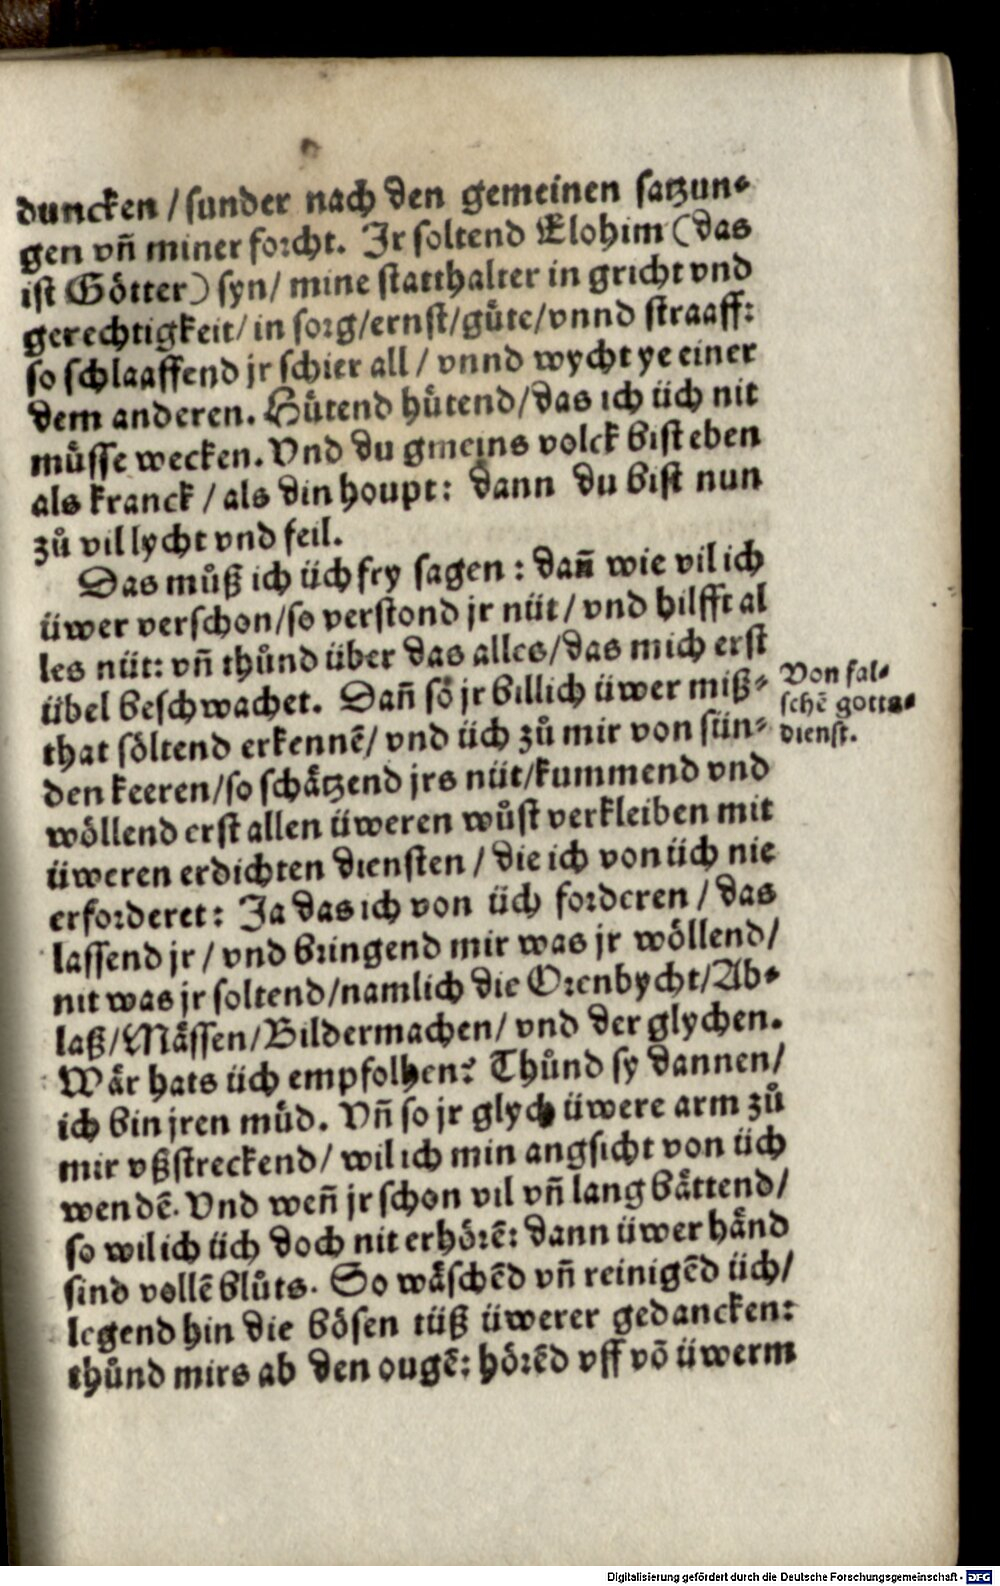 duncken / sunder nach den gemeinen satzun-
gen vñ miner forcht. Jr soltend Elohim (das
ist Götter) syn / mine statthalter in gricht vnd
gerechtigkeit / in sorg / ernst / guͤte / vnnd straaff:
so schlaaffend jr schier all / vnnd wycht ye einer
dem anderen. Huͤtend huͤtend / das ich üch nit
muͤsse wecken. Vnd du gmeins volck bist eben
als kranck / als din houpt: dann du bist nun
zuͦ vil lycht vnd feil.
Das muͦß ich üch fry sagen: dañ wie vil ich
üwer verschon / so verstond jr nüt / vnd hilfft al
les nüt: vñ thuͦnd über das alles / das mich erst
übel beschwachet. Dañ so jr billich üwer miß-
that söltend erkennē / vnd üch zuͦ mir von sün-
den keeren / so schätzend jrs nüt / kummend vnd
wöllend erst allen üweren wuͦst verkleiben mit
üweren erdichten diensten / die ich von üch nie
erforderet: Ja das ich von üch forderen / das
lassend jr / vnd bringend mir was jr wöllend /
nit was jr soltend / namlich die Orenbycht / Ab-
laß / Mässen / Bildermachen / vnd der glychen.
Wär hats üch empfolhen? Thuͦnd sy dannen /
ich bin jren muͤd. Vñ so jr glych üwere arm zuͦ
mir vßstreckend / wil ich min angsicht von üch
wendē. Vnd weñ jr schon vil vñ lang bättend /
so wil ich üch doch nit erhörē: dann üwer händ
sind vollē bluͦts. So wäschēd vñ reinigēd üch /
legend hin die bösen tüß üwerer gedancken:
thuͦnd mirs ab den ougē: hörēd vff vō üwerm
Von fal-
schē gotts-
dienst.
Digitalisierung gefördert durch die Deutsche Forschungsgemeinschaft - DFG